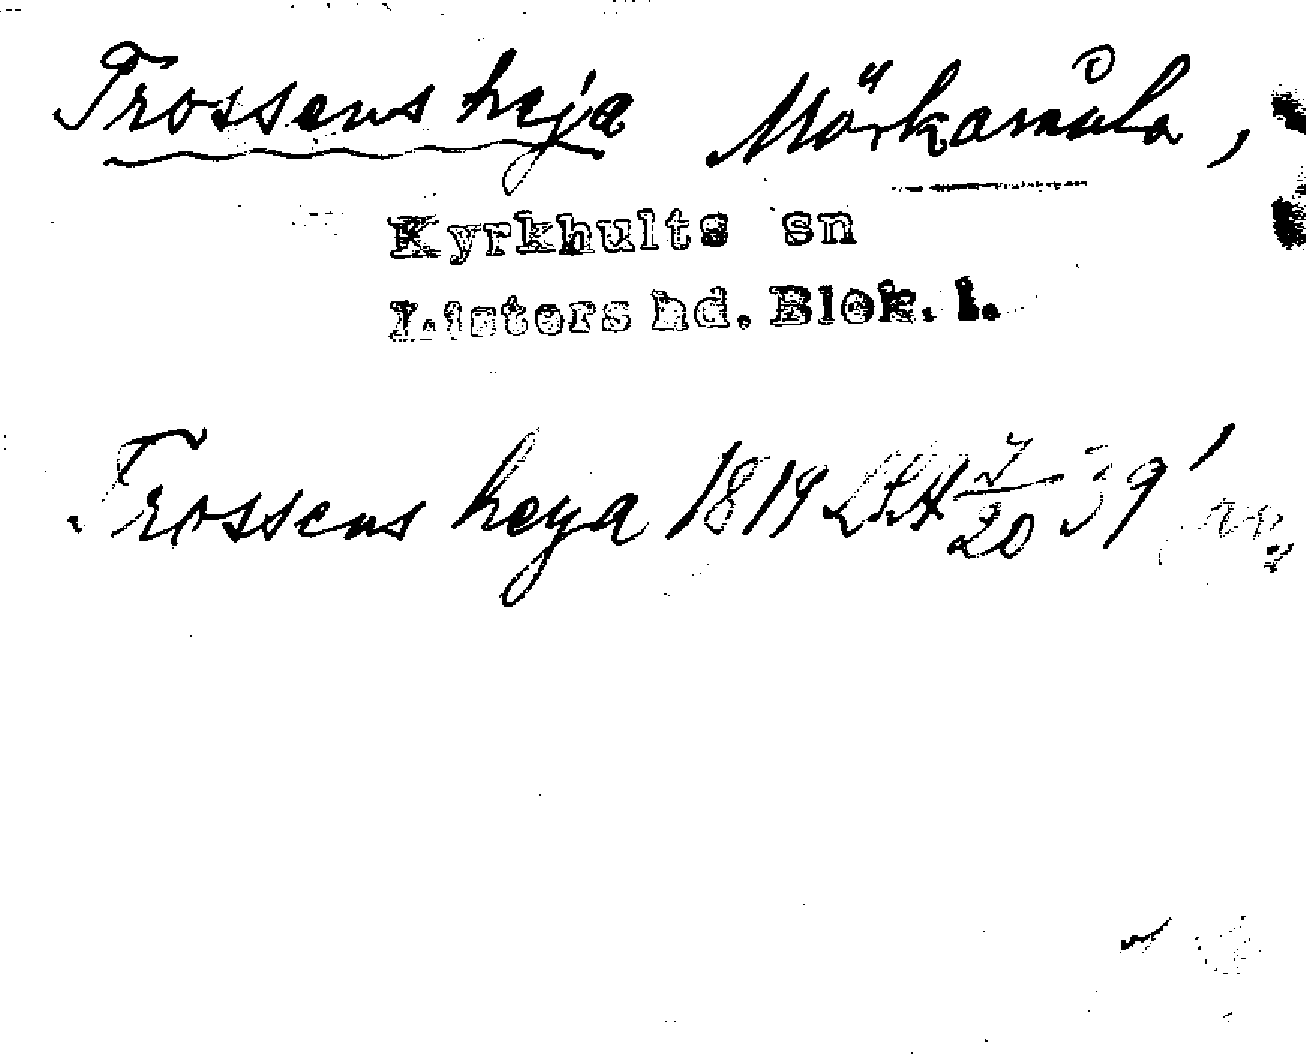 Trossens heja Mörkamåla,
Kyrkhults sn
Listers hd. Blek. l.
Trossens heya 1819 LSA 7/20 39